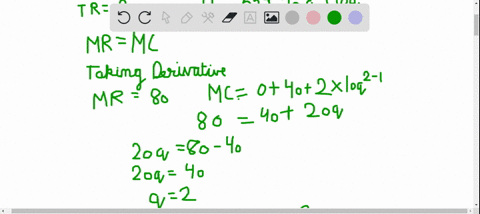 TR=
MR=MC
Taking Derivative
MR = 80 MC= 0+40+2×10q^2-1
80 = 40+ 20q
20q =80-40
20q= 40
q=2